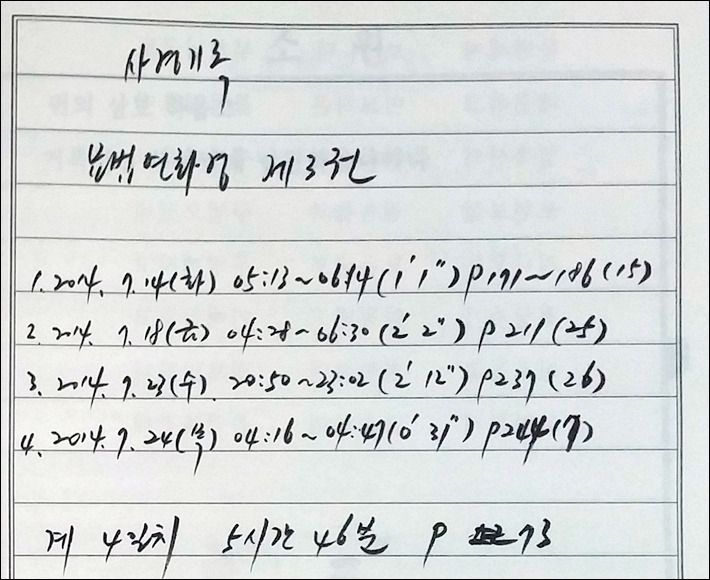 사경기록
묘법연화경 제3권
1. 2014. 7. 14(화) 05:13~06:14(1' 1") P171~186(15)
2. 2014. 7. 18(금) 04:28~06:30(2' 2") P211(25)
3. 2014. 7. 23(수) 20:50~23:02(2' 12") P237(26)
4. 2014. 7. 24(목) 04:16~04:47(0' 31") P244(7)
계 4일치 5시간 46분 P 73